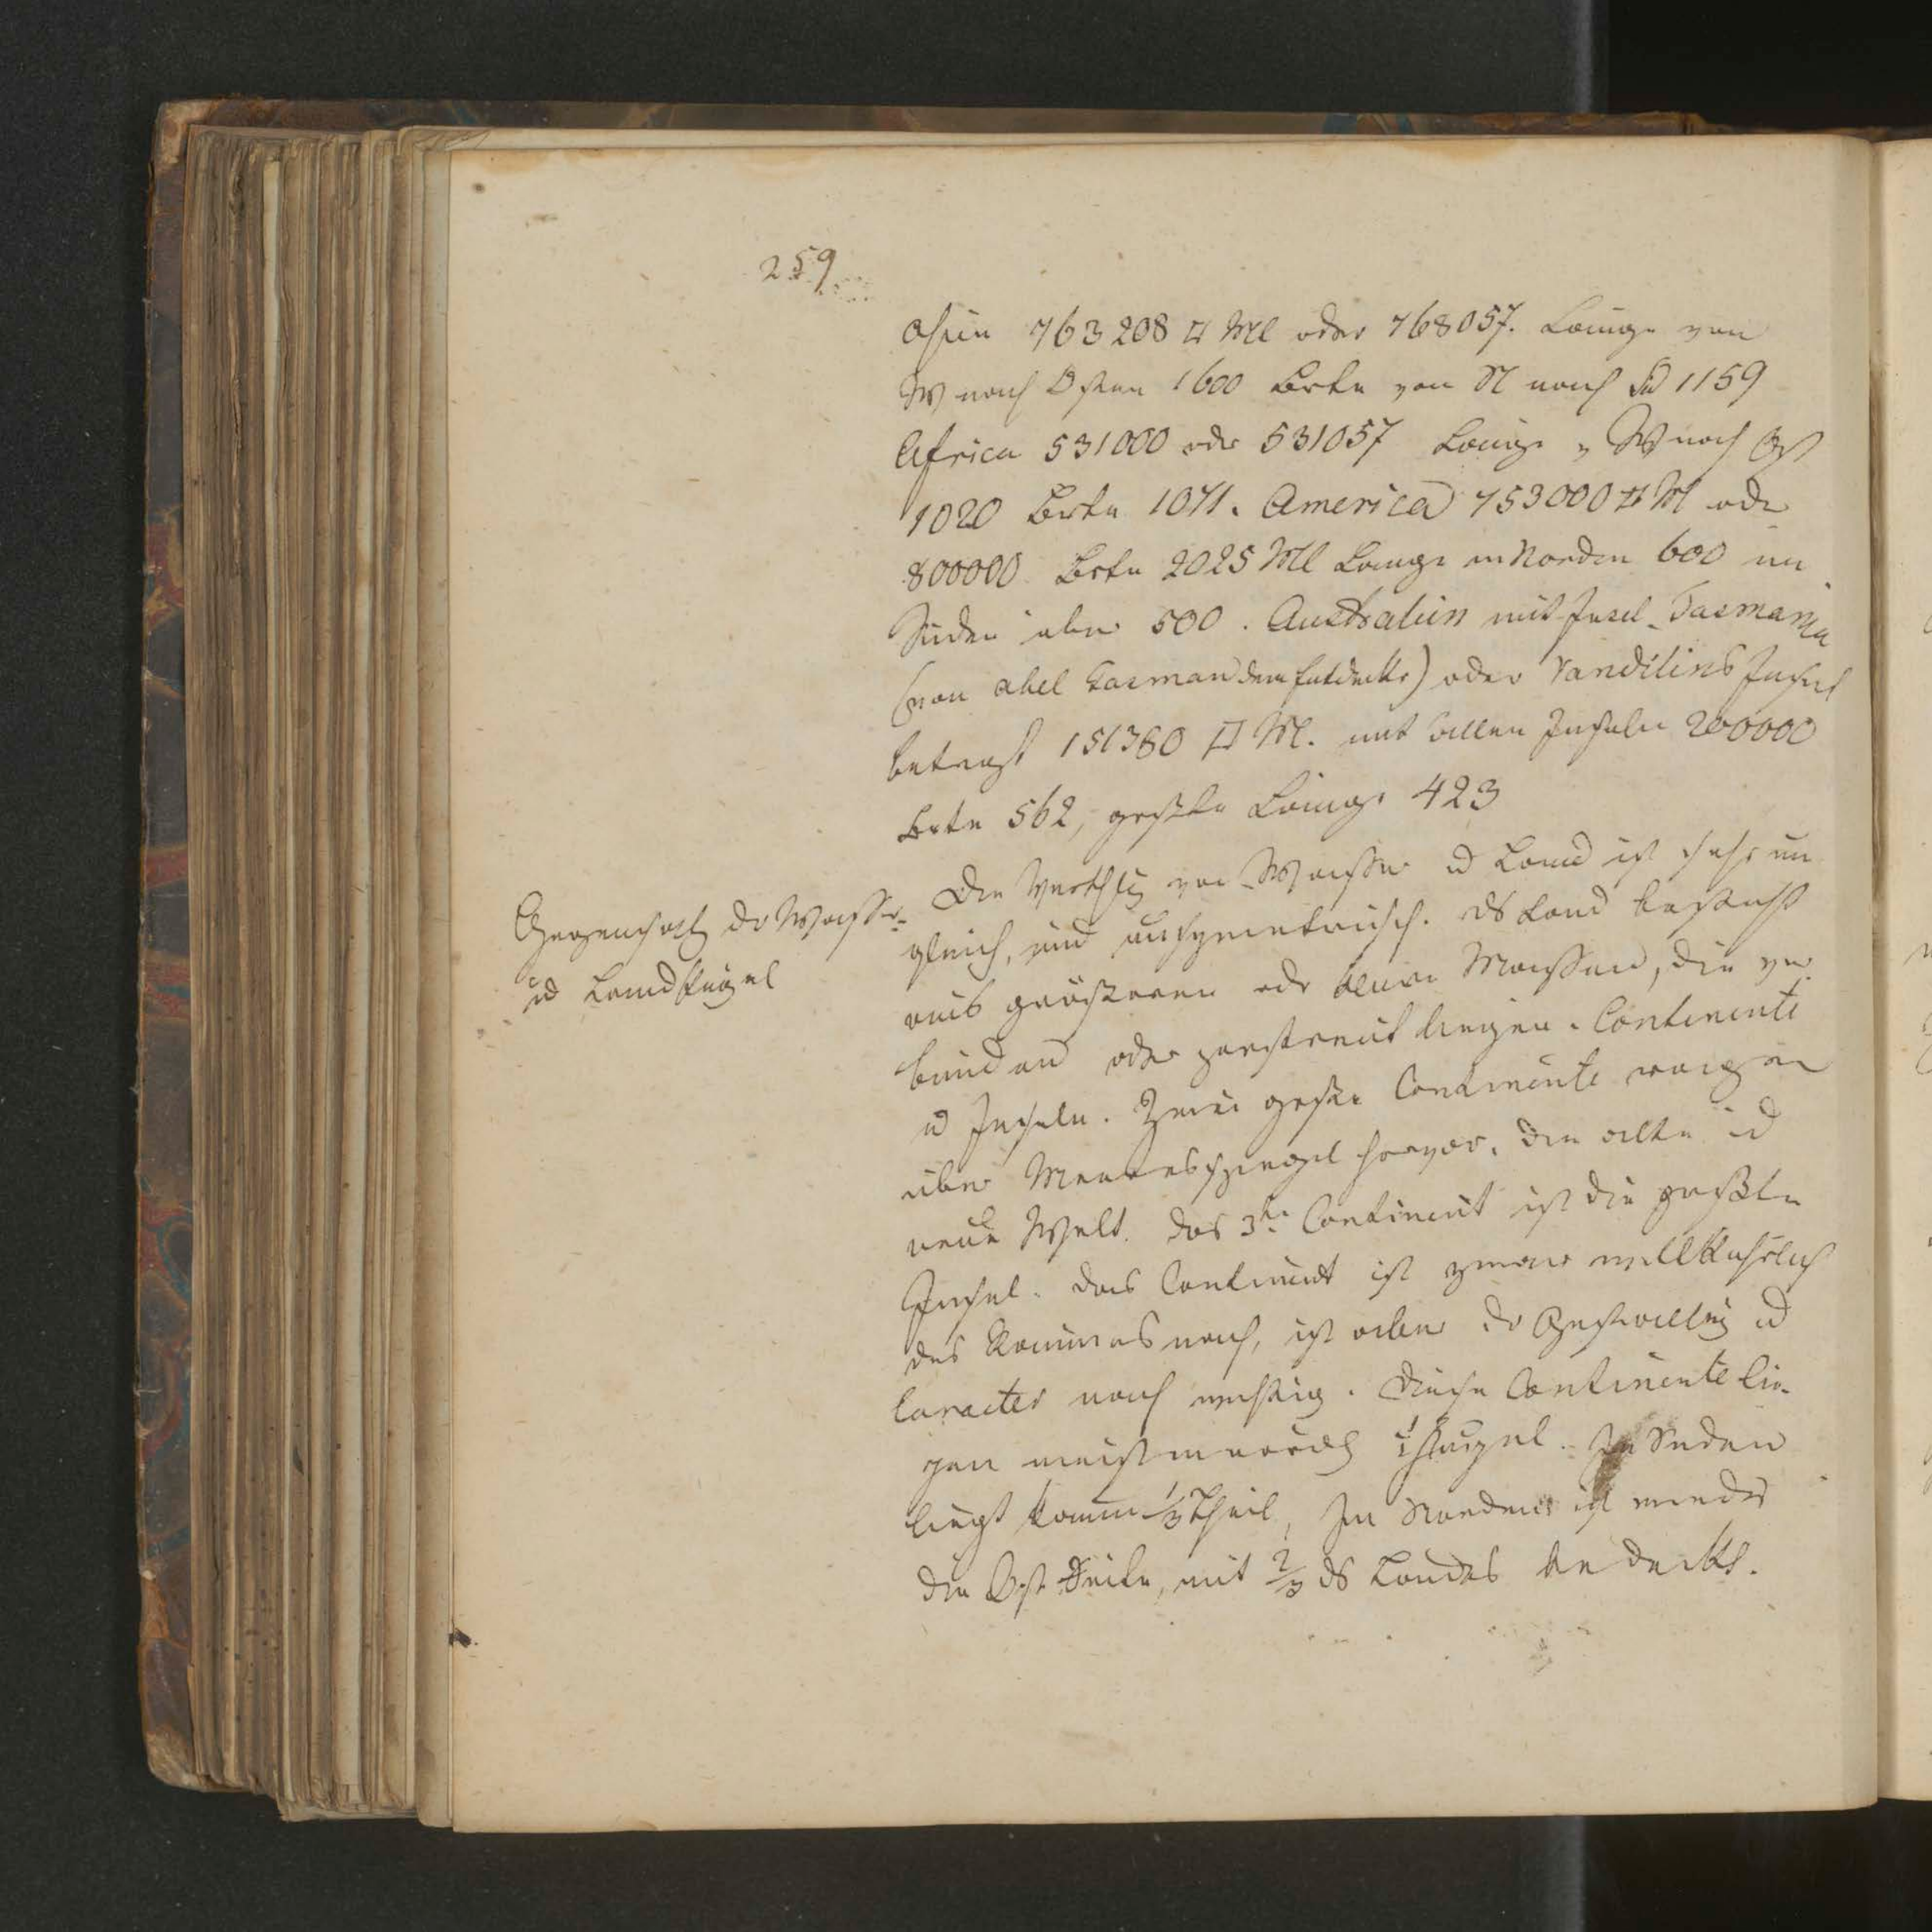 259
Asien 763208 □ Ml oder 768057. Länge von
W nach Osten 1600 Breite von N nach Sd 1159
Africa 531000 odr 531057 Länge v W nach Ost
1020 Breite 1071. America 753000 □ Ml odr
800000 Breite 2025 Ml Länge in Norden 600 im
Süden aber 500. Australien mit Insel Tasmania
(von Abel Tasman dem Entdecker) oder Vandiliens Insel
beträgt 151380 □ Ml. mit allen Inseln 200000
Breite 562, größte Länge 423
Gegensatz dr Wasser-
ud Landkugel
Die Verthlg von Wasser ud Land ist sehr un
gleich, und unsymetrisch. ds Land besteht
aus größeren odr Massen, die ver
bunden oder zerstreut liegen. Continente
ud Inseln. Zwei große Continente ragen
über Meeresspiegel hervor, die alte ud
neue Welt. das 3te Continent ist die größte
Insel. das Continent ist zwar willkührlich
des Raumes nach, ist aber dr Gestaltung ud
Caracter nach wichtig. Diese Continente lie-
gen meist in nördl Im Süden
liegt kaum 1/3 Theil, Im Norden ist wieder
die Ost Seite, mit 2/3 ds Landes bedeckt.